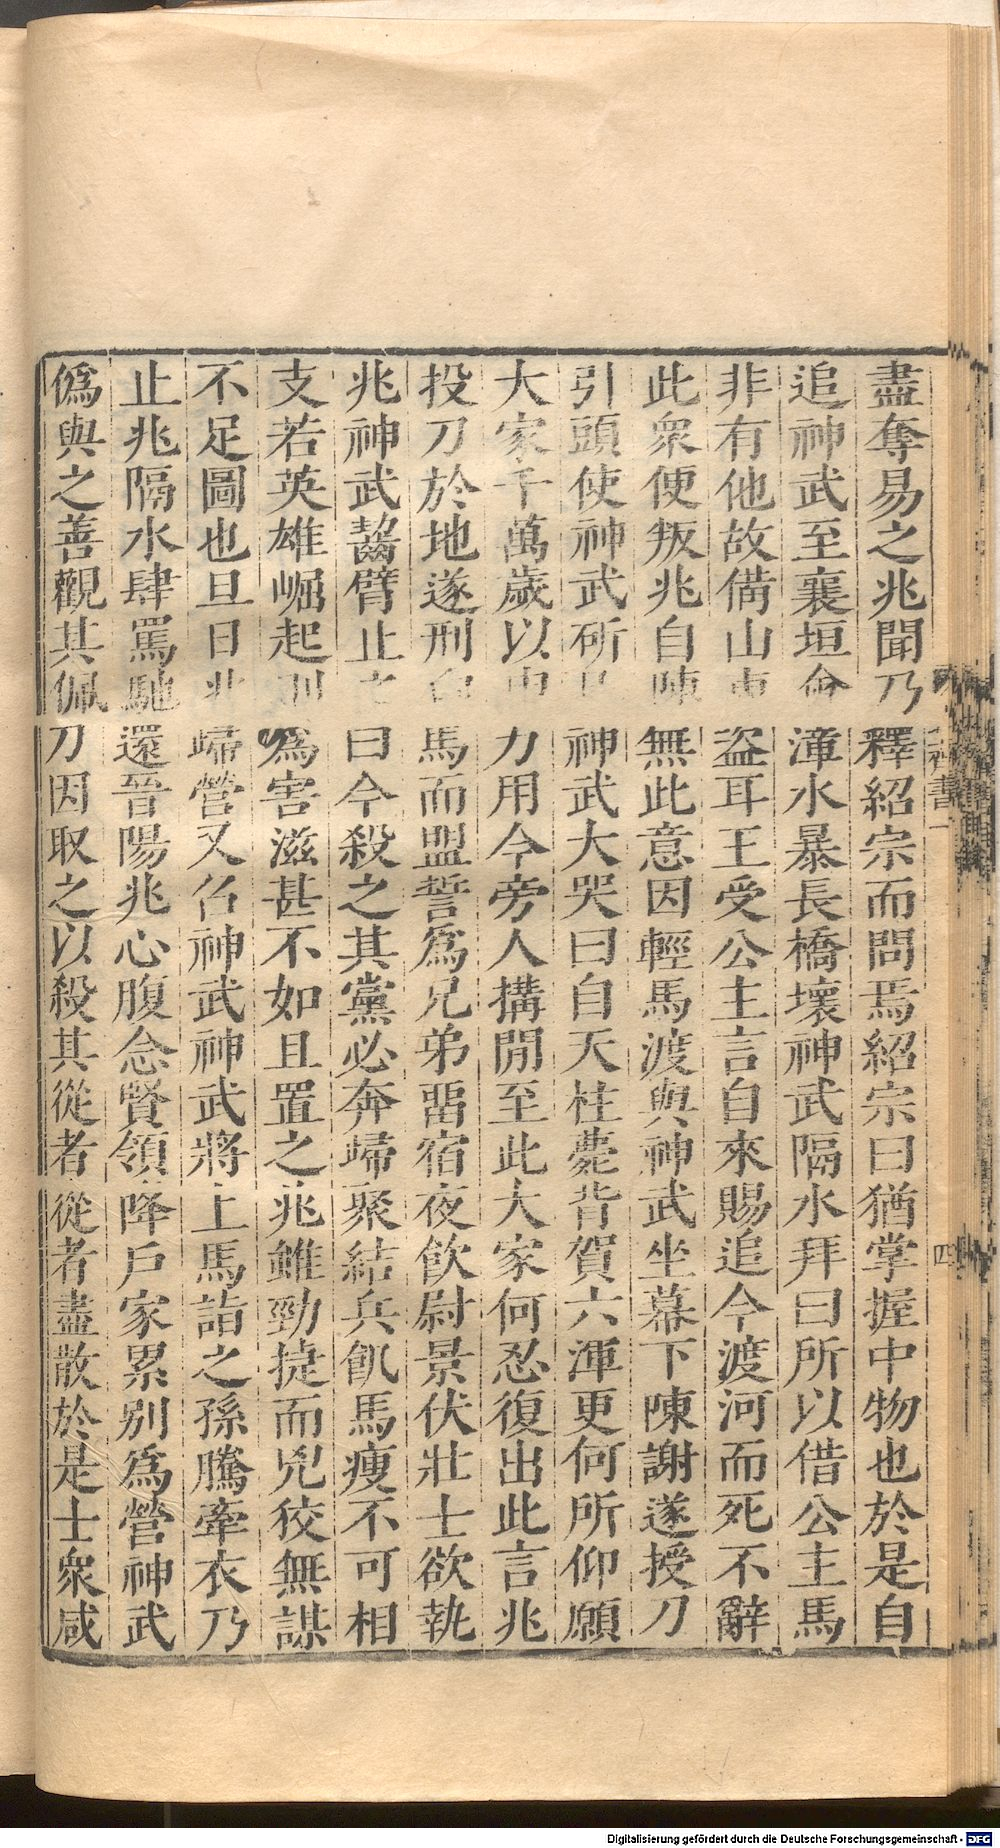 盡奪易之兆聞乃釋紹宗而問焉紹宗曰猶掌握中物也於是自
追神武至襄垣會漳水暴長橋壞神武隔水拜曰所以借公主馬
非有他故備山東盗耳王受公主言自來賜追今渡河而死不辭
此衆便叛兆自陳無此意因輕馬渡與神武坐幕下陳謝遂授刀
引頭使神武斫神武大哭曰自天柱薨背賀六渾更何所仰願
大家千萬歲以申力用今旁人搆間至此大家何忍復出此言兆
投刀於地遂刑白馬而盟誓爲兄弟畱宿夜飲尉景伏壯士欲執
兆神武齧臂止之曰今殺之其黨必奔歸聚結兵飢馬瘦不可相
支若英雄崛起則爲害滋甚不如且置之兆雖勁捷而兇狡無謀
不足圖也旦日兆歸營又召神武神武將上馬詣之孫騰牽衣乃
止兆隔水肆罵馳還晉陽兆心腹念賢領降戶家累別爲營神武
僞與之善觀其佩刀因取之以殺其從者從者盡散於是士衆咸
四
Digitalisierung gefördert durch die Deutsche Forschungsgemeinschaft - DFG